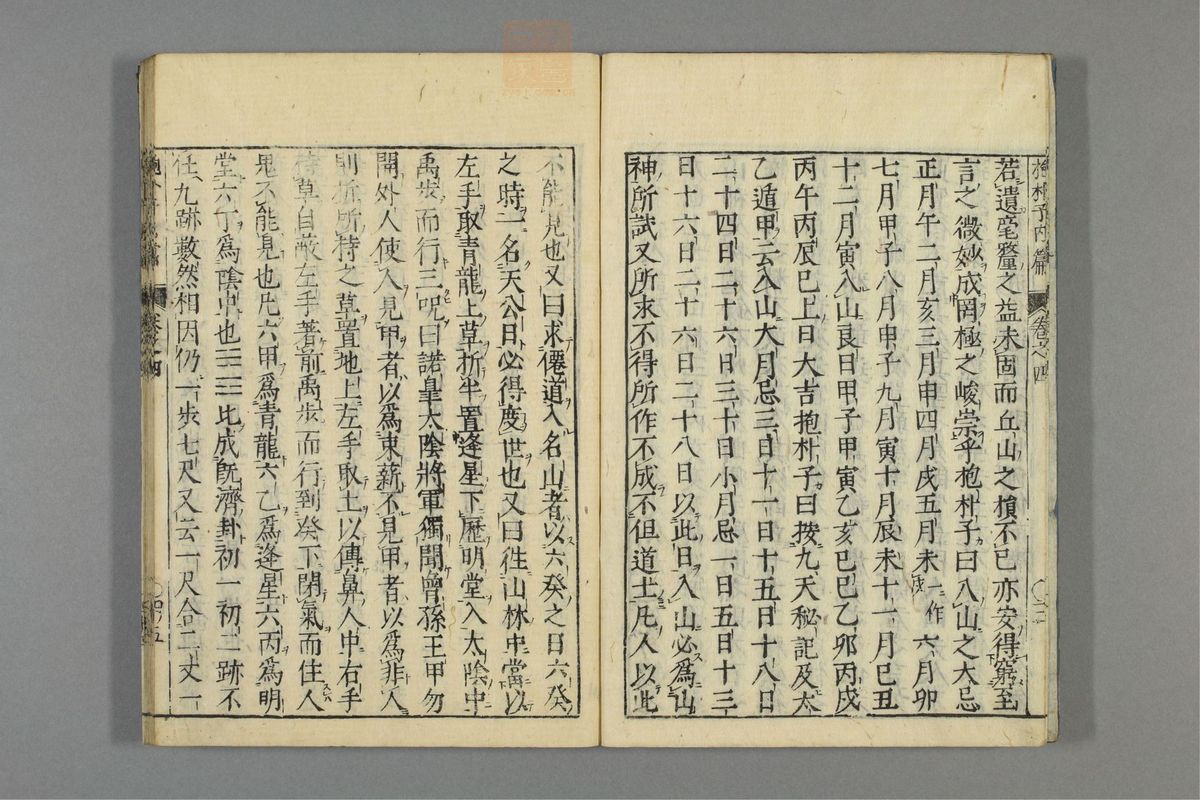 抱朴子内篇 卷之四
若遺毫釐之益未固而丘山之損不已亦安得窮至
言之微妙成罔極之峻崇乎抱朴子曰入山之大忌
正月午二月亥三月申四月戌五月未一作戌六月卯
七月甲子八月申子九月寅十月辰未十一月巳丑
十二月寅入山良日甲子甲寅乙亥乙巳乙卯丙戌
丙午丙辰巳上日大吉抱朴子曰按九天秘記及太
乙遁甲云入山大月忌三日十一日十五日十八日
二十四日二十六日三十日小月忌一日五日十三
日十六日二十六日二十八日以此日入山必為山
神所試又所求不得所作不成不但道士凡人以此
不能見也又曰求僊道入名山者以六癸之日六癸
之時一名天公日必得度世也又曰徃山林中當以
左手取青龍上草折半置逢星下歷明堂入太陰中
禹步而行三呪曰諾皐太陰將軍獨聞曾孫王甲勿
開外人使人見甲者以為束薪不見甲者以為非人
則折所持之草置地上左手取土以傅鼻人中右手
持草自蔽左手著前禹步而行到癸下閉氣而住人
鬼不能見也凡六甲為青龍六乙為逢星六丙為明
堂六丁為陰中也䷾比成既濟卦初一初二跡不
任九跡數然相因仍一步七尺又云一尺合二丈一
卷之四